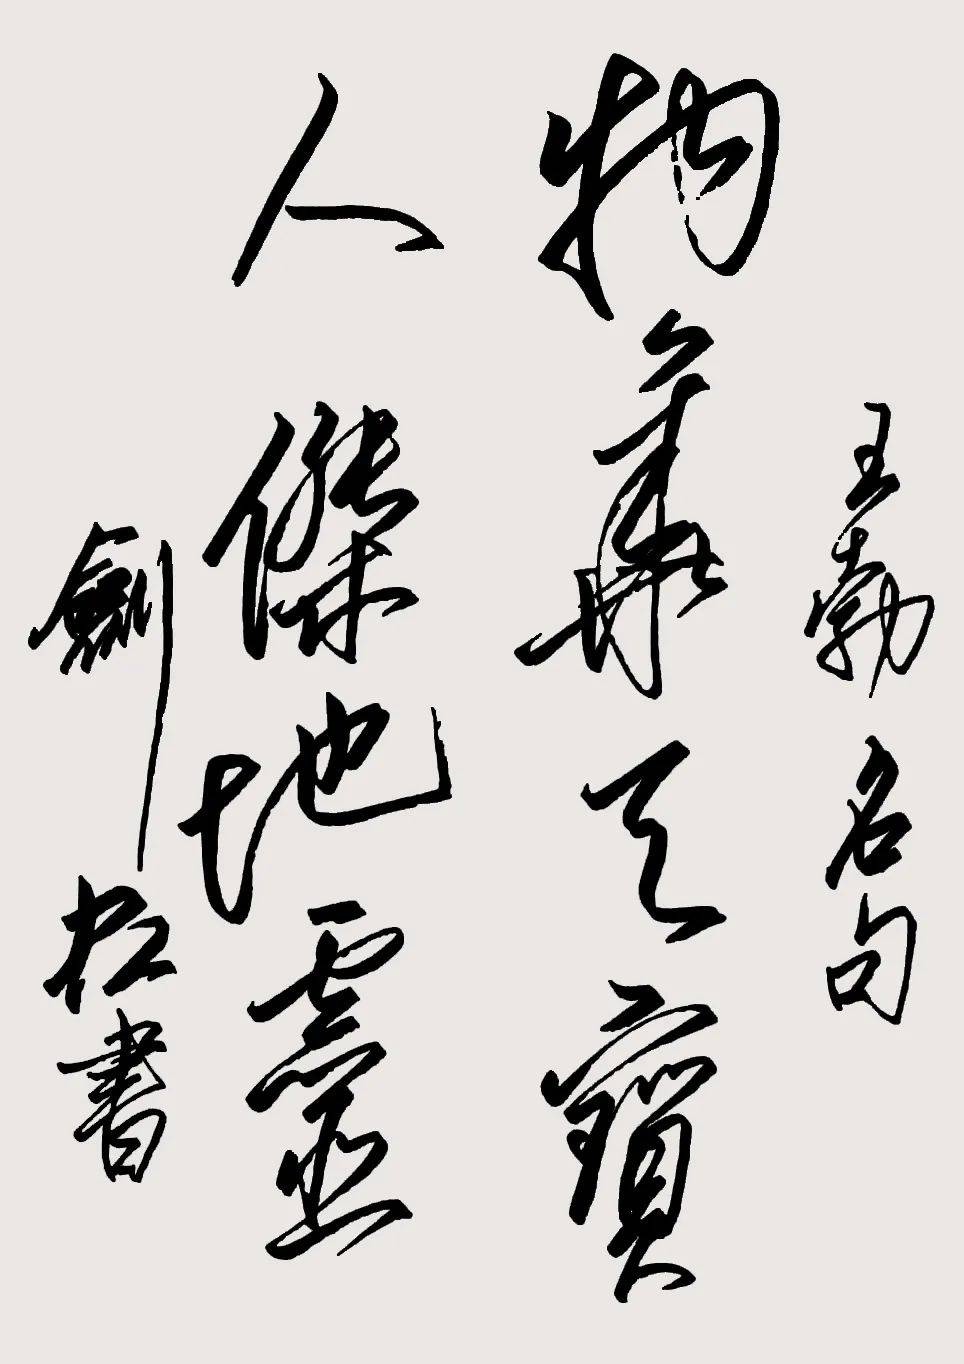 王勃名句
物華天寶
人傑地靈
劍松書